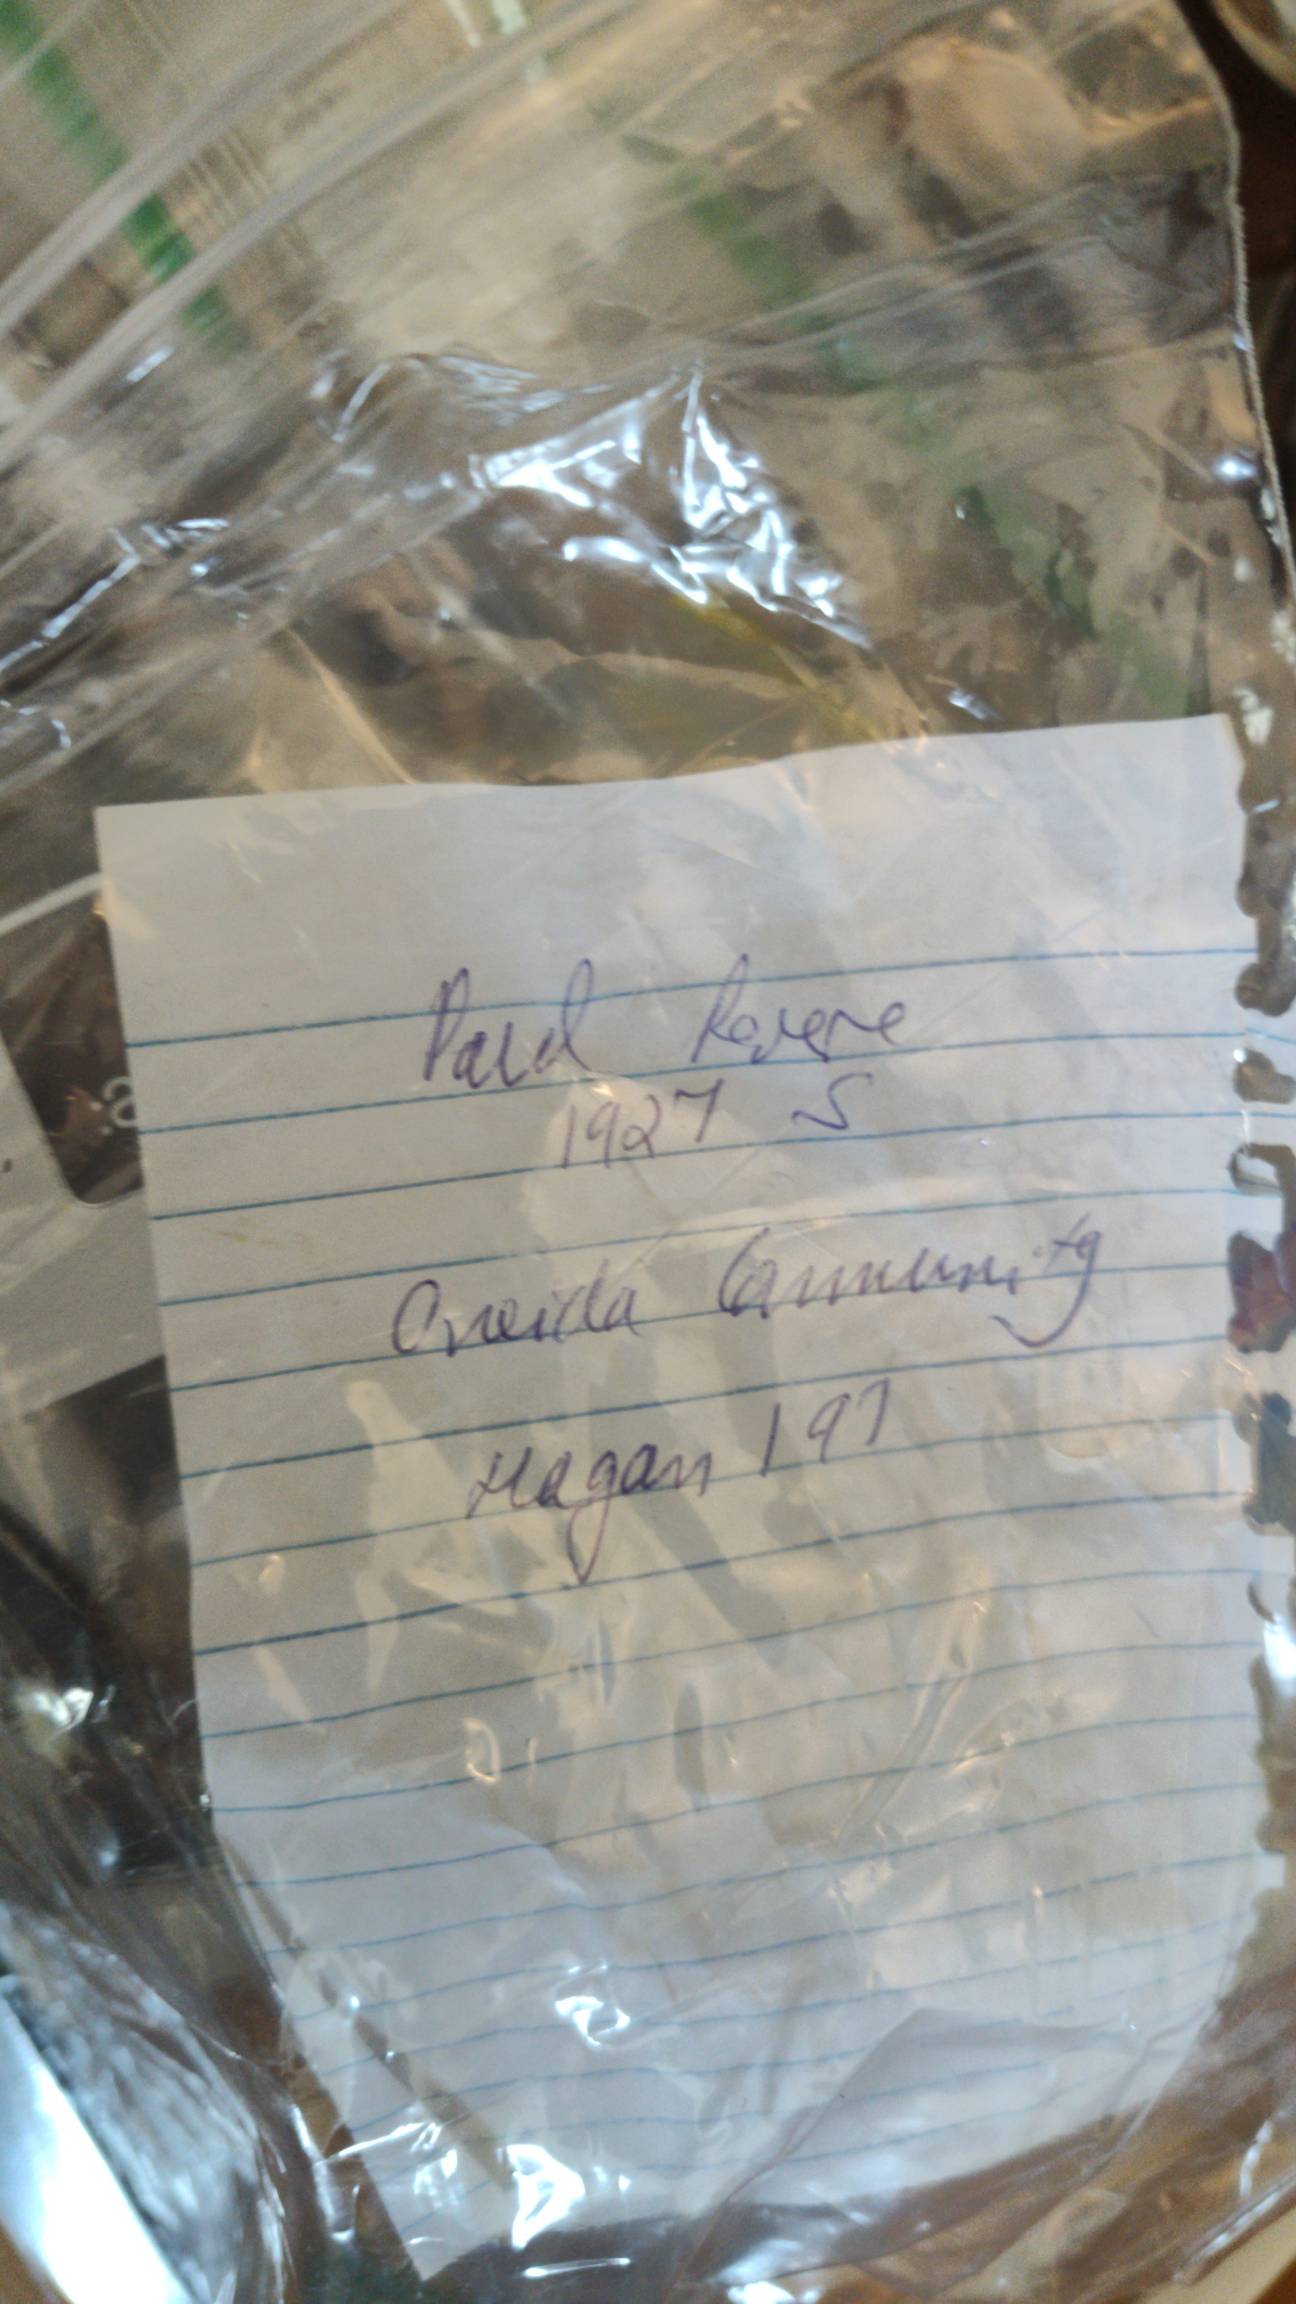 Paul Revere
1927 S
Oneida Community
Hagan 197
.a